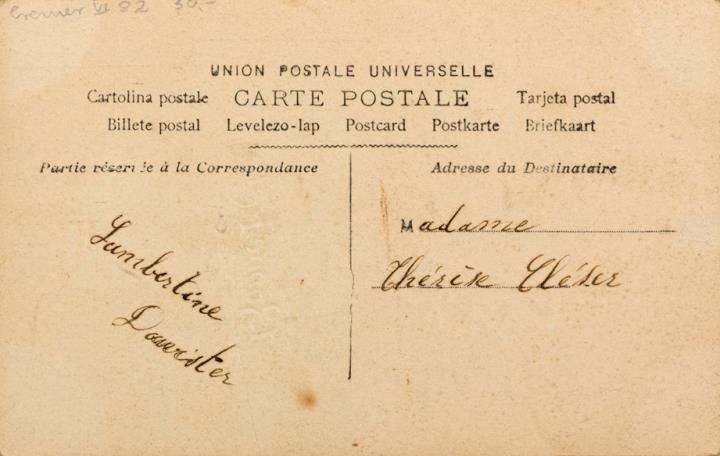 Cremer VI 82 30,-
UNION POSTALE UNIVERSELLE
Cartolina postale CARTE POSTALE Tarjeta postal
Billete postal Levelezo-lap Postcard Postkarte Briefkaart
Partie réservée à la Correspondance
Adresse du Destinataire
Lambertine
Dauvister
Madame
Thérèse Cléser